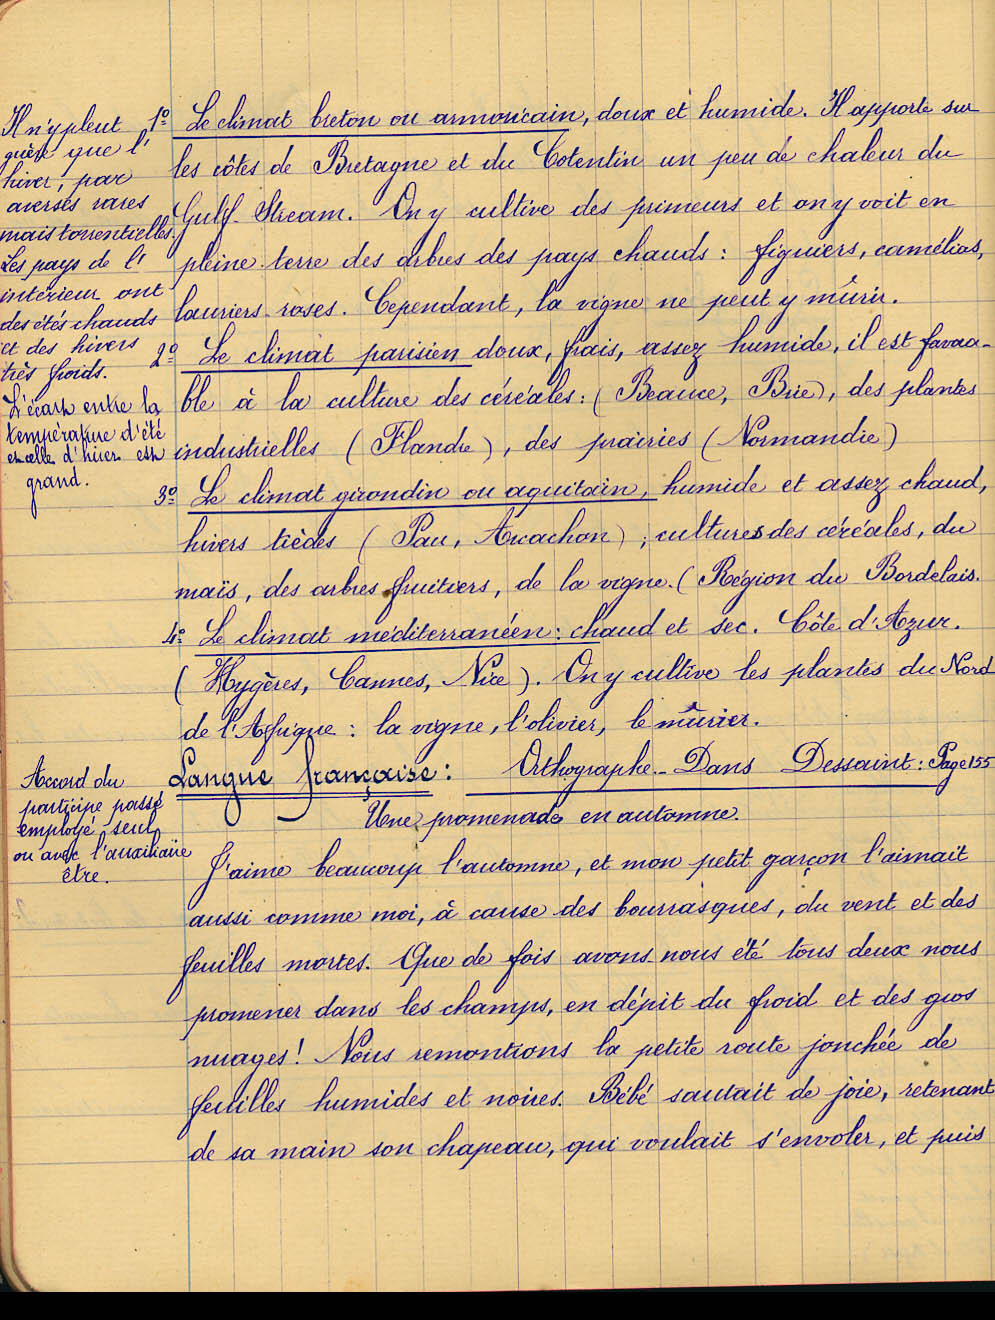 Il n'y pleut
guère que l'
hiver, par
averses rares
mais torrentielles.
Les pays de l'
intérieur ont
des étés chauds
et des hivers
très froids.
L'écart entre la
température d'été
et celle d'hiver est
grand.
1º Le climat breton ou armoricain, doux et humide. Il apporte sur
les côtes de Bretagne et du Cotentin un peu de chaleur du
Gulf Stream. On y cultive des primeurs et on y voit en
pleine terre des arbres des pays chauds : figuiers, camélias,
lauriers-roses. Cependant, la vigne ne peut y mûrir.
2º Le climat parisien doux, frais, assez humide, il est favora-
ble à la culture des céréales : (Beauce, Brie), des plantes
industrielles (Flandre), des prairies (Normandie)
3º Le climat girondin ou aquitain, humide et assez chaud,
hivers tièdes (Pau, Arcachon) ; cultures des céréales, du
maïs, des arbres fruitiers, de la vigne. (Région du Bordelais.
4º Le climat méditerranéen : chaud et sec. Côte d'Azur.
(Hyères, Cannes, Nice). On y cultive les plantes du Nord
de l'Afrique : la vigne, l'olivier, le mûrier.
Langue française : Orthographe - Dans Dessaint : Page 155
Accord du
participe passé
employé seul
ou avec l'auxiliaire
être.
Une promenade en automne.
J'aime beaucoup l'automne, et mon petit garçon l'aimait
aussi comme moi, à cause des bourrasques, du vent et des
feuilles mortes. Que de fois avons-nous été tous deux nous
promener dans les champs, en dépit du froid et des gros
nuages ! Nous remontions la petite route jonchée de
feuilles humides et noires. Bébé sautait de joie, retenant
de sa main son chapeau, qui voulait s'envoler, et puis